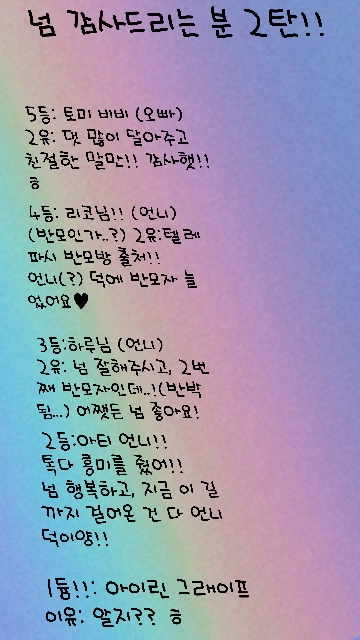 넘 걈사드리는 분 2탄!!
5등: 토미 비비 (오빠)
2유: 댓 많이 달아주고
친절한 말만!! 걈사햇!!
ㅎ
4등: 리코님!! (언니)
(반모인가..?) 2유:텔레
파시 반모방 출처!!
언니(?) 덕에 반모자 늘
었어요♥
3등:하루님 (언니)
2유: 넘 잘해주시고, 2번
째 반모자인데..!(반박
됨...) 어쨌든 넘 좋아요!
2등:아티 언니!!
톡다 흥미를 줬어!!
넘 행복하고, 지금 이 길
까지 걸어온 건 다 언니
덕이양!!
1등!!: 아이린 그래이프
이유: 알지?? ㅎ